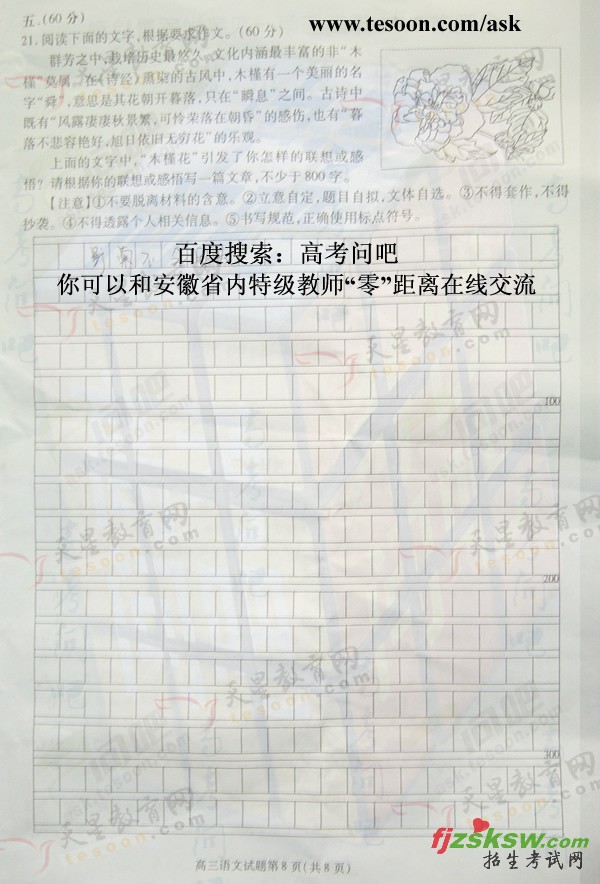 www.tesoon.com/ask
五.(60分)
21.阅读下面的文字,根据要求作文。(60分)
群芳之中,栽培历史最悠久、文化内涵最丰富的非“木
槿”莫属。在《诗经》熏染的古风中,木槿有一个美丽的名
字“舜”,意思是其花朝开暮落,只在“瞬息”之间。古诗中
既有“风露凄凄秋景繁,可怜荣落在朝昏”的感伤,也有“暮
落不悲容艳好,旭日依旧无穷花”的乐观。
上面的文字中,“木槿花”引发了你怎样的联想或感
悟?请根据你的联想或感悟写一篇文章,不少于800字。
【注意】①不要脱离材料的含意。②立意自定,题目自拟,文体自选。③不得套作,不得
抄袭。④不得透露个人相关信息。⑤书写规范,正确使用标点符号。
百度搜索:高考问吧
你可以和安徽省内特级教师“零”距离在线交流
天星教育网
tesoon.com
100
200
300
高三语文试题第8页(共8页)
fjzsksw.com
招生考试网